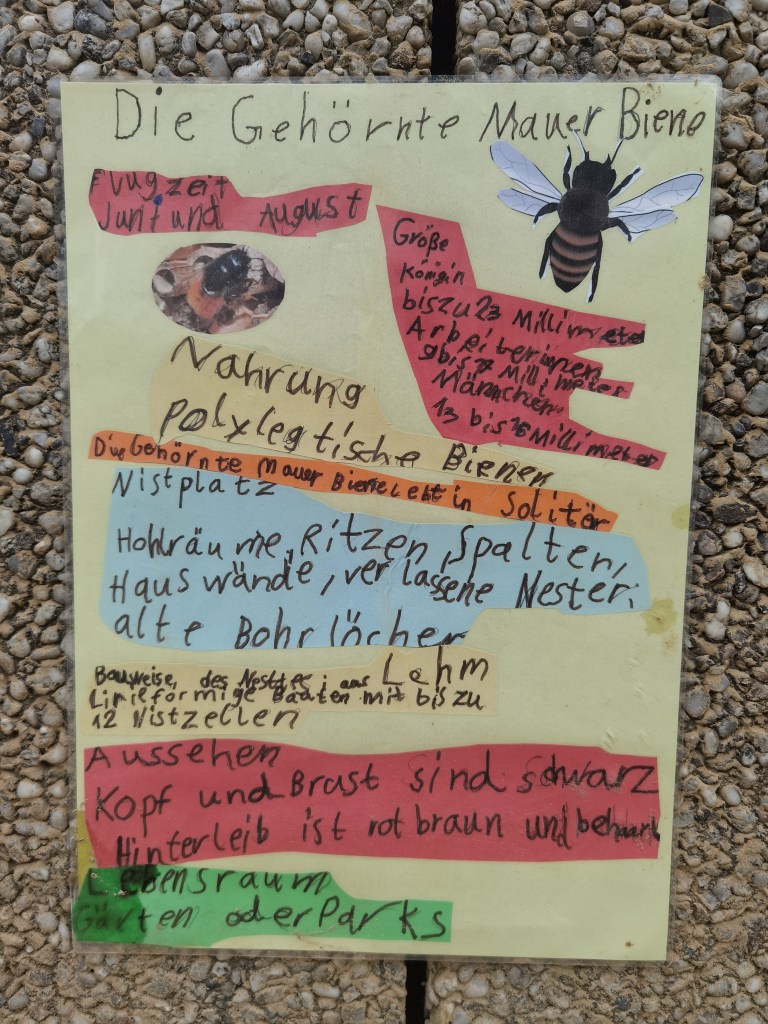 Die Gehörnte Mauer Biene
Flugzeit
Juni und August
Größe
Königin
bis zu 23 Millimeter
Arbeiterinnen
9 bis Millimeter
Männchen
13 bis 16 Millimeter
Nahrung
polylegtische Bienen
Die Gehörnte Mauer Biene lebt in Solitär
Nistplatz
Hohlräume, Ritzen, Spalten,
Haus wände, verlassene Nester,
alte Bohrlöcher
Bauweise, des Nestes: aus Lehm
Linieförmige Bauten mit bis zu
12 Nistzellen
Aussehen
Kopf und Brust sind schwarz
Hinterleib ist rot braun und behaart
Lebensraum
Gärten oder Parks